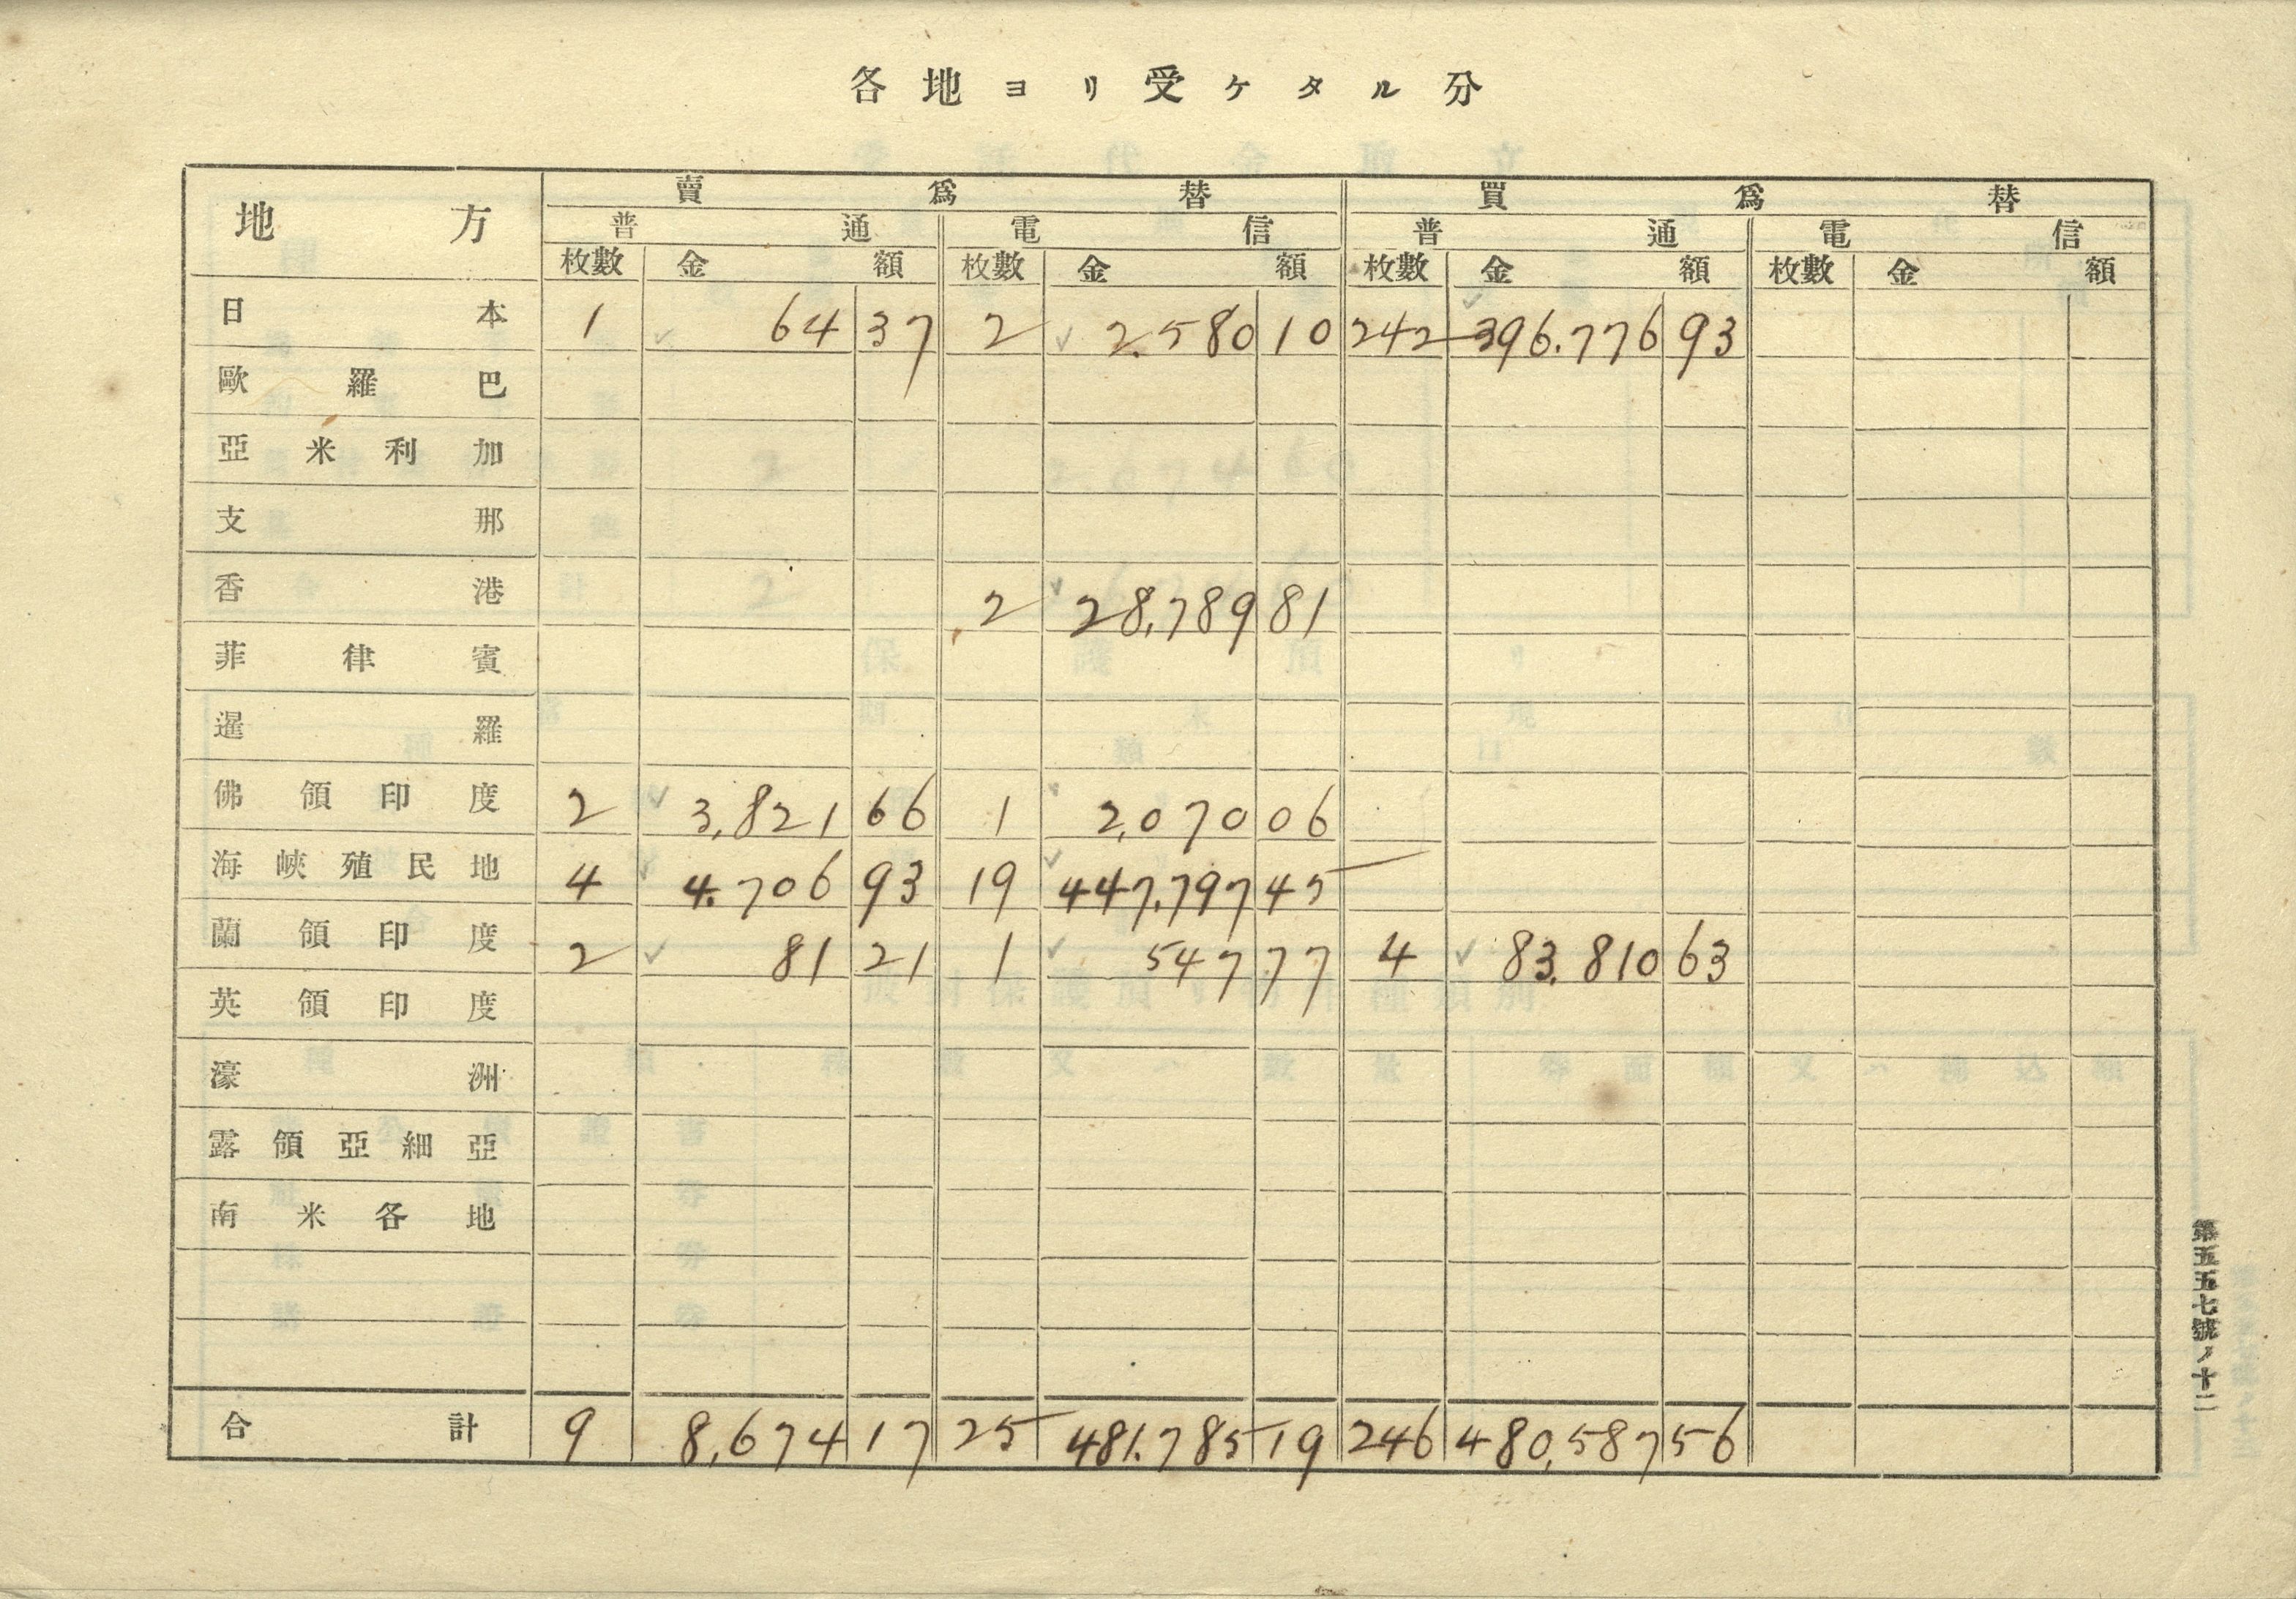 各地ヨリ受ケタル分
地方 賣爲替 買爲替
普通 電信 普通 電信
枚數 金額 枚數 金額 枚數 金額 枚數 金額
日本 1 64 37 2 2.580 10 242 396.776 93
歐羅巴
亞米利加
支那
香港 2 28,789 81
菲律賓
暹羅
佛領印度 2 3,821 66 1 2,070 06
海峽殖民地 4 4.706 93 19 447,797 45
蘭領印度 2 81 21 1 547 77 4 83.810 63
英領印度
濠洲
露領亞細亞
南米各地
合計 9 8,674 17 25 481.785 19 246 480,587 56
第五五七號ノ十二